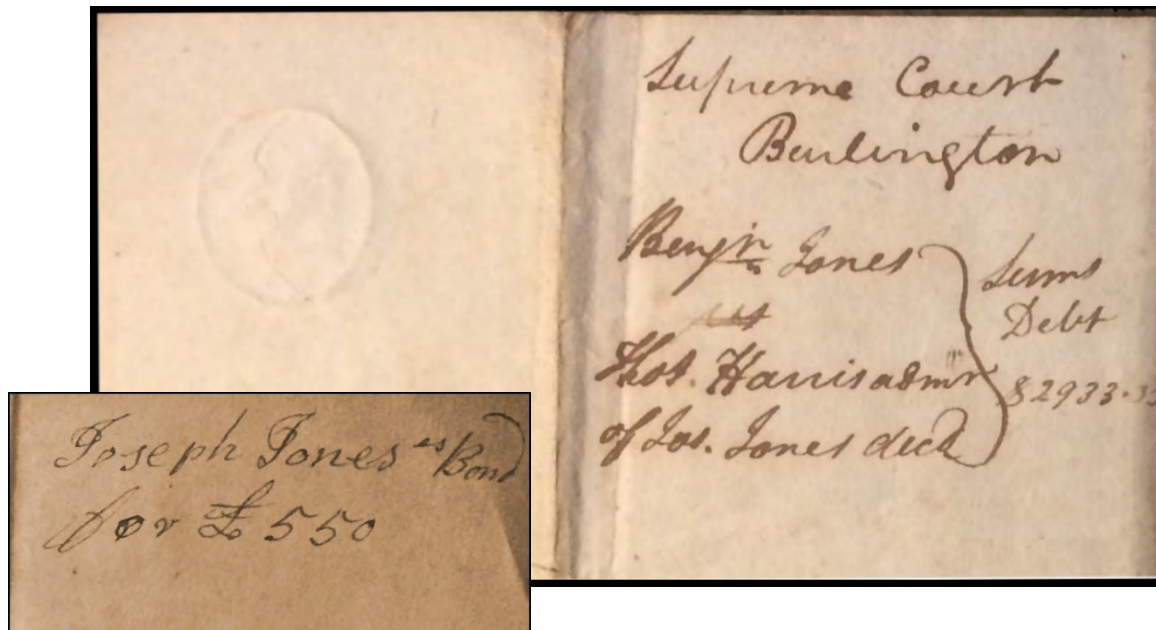 Supreme Court
Burlington
Benjn Jones
vs
Thos. Harris admr
of Jos. Jones decd
Sums
Debt
$2933.33
Joseph Jones es Bond
for £550